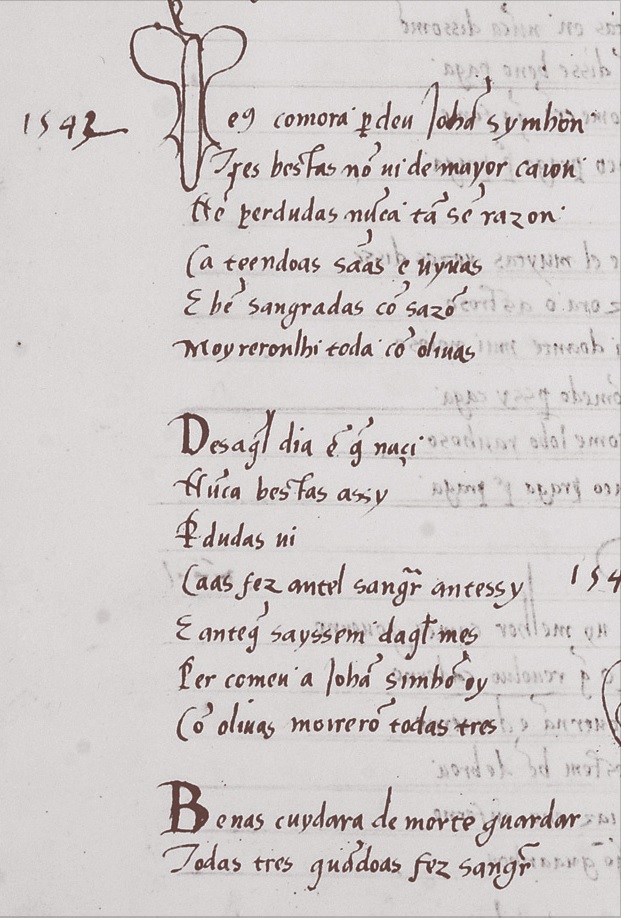 1542
Ves comora ꝑdeu Johã symhon
Tres bestas nõ ui de mayor caion
Nẽ ꝑerdudas nũca tã sẽ razon
Ca teendoas sããs e uyuas
E bẽ sangradas cõ sazõ
Moyreronlhi toda cõ oliuas
Desaq̃l dia ẽ q̃ naçi
Nũca bestas assy
Ꝑdudas ui
Caas fez antel sangr̃ antessy
E anteq̃ sayssem daq̃l mes
Per comeu a Johã simhõ oy
Cõ oliuas moirerõ todas tres
154
Benas cuydara de morte guardar
Todas tres quãdoas fez sangr̃